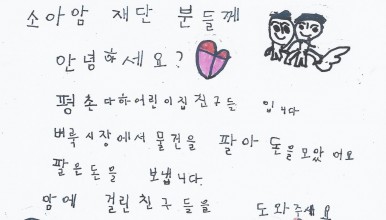 소아암 재단 분들께
안녕하세요?
평촌다하어린이집 친구들 입니다
벼룩시장에서 물건을 팔아 돈을 모았어요
팔은돈을 보냅니다.
암에 걸린친구들을 도와주세요